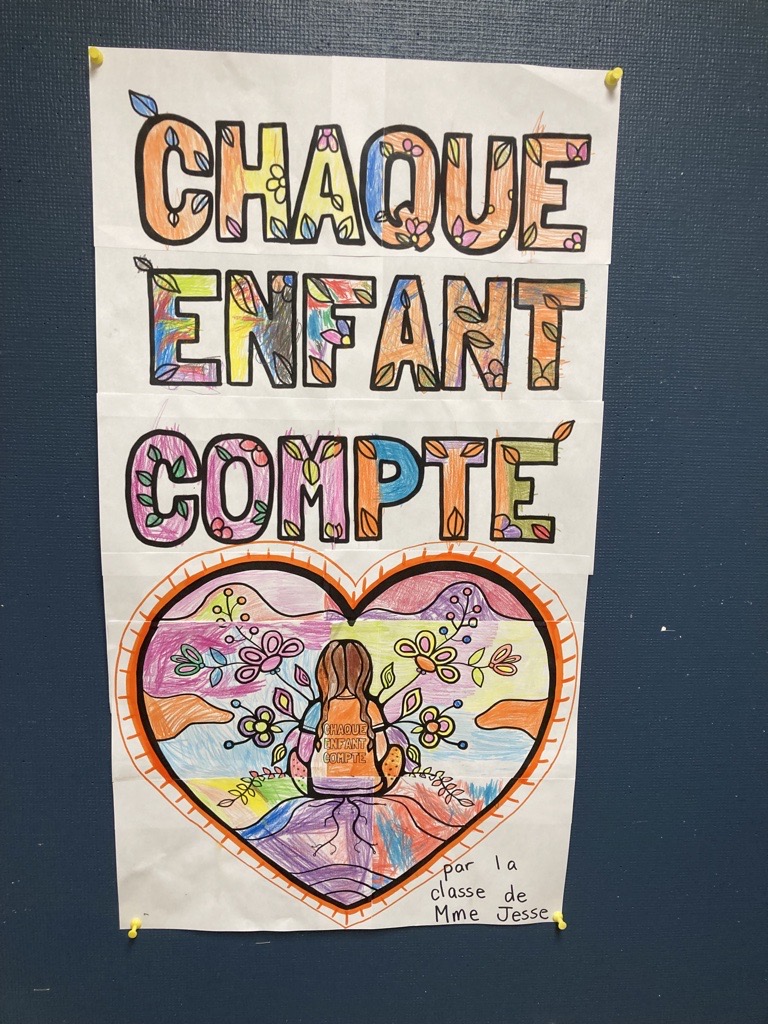 CHAQUE
ENFANT
COMPTE
CHAQUE
ENFANT
COMPTE
par la
classe de
Mme Jesse